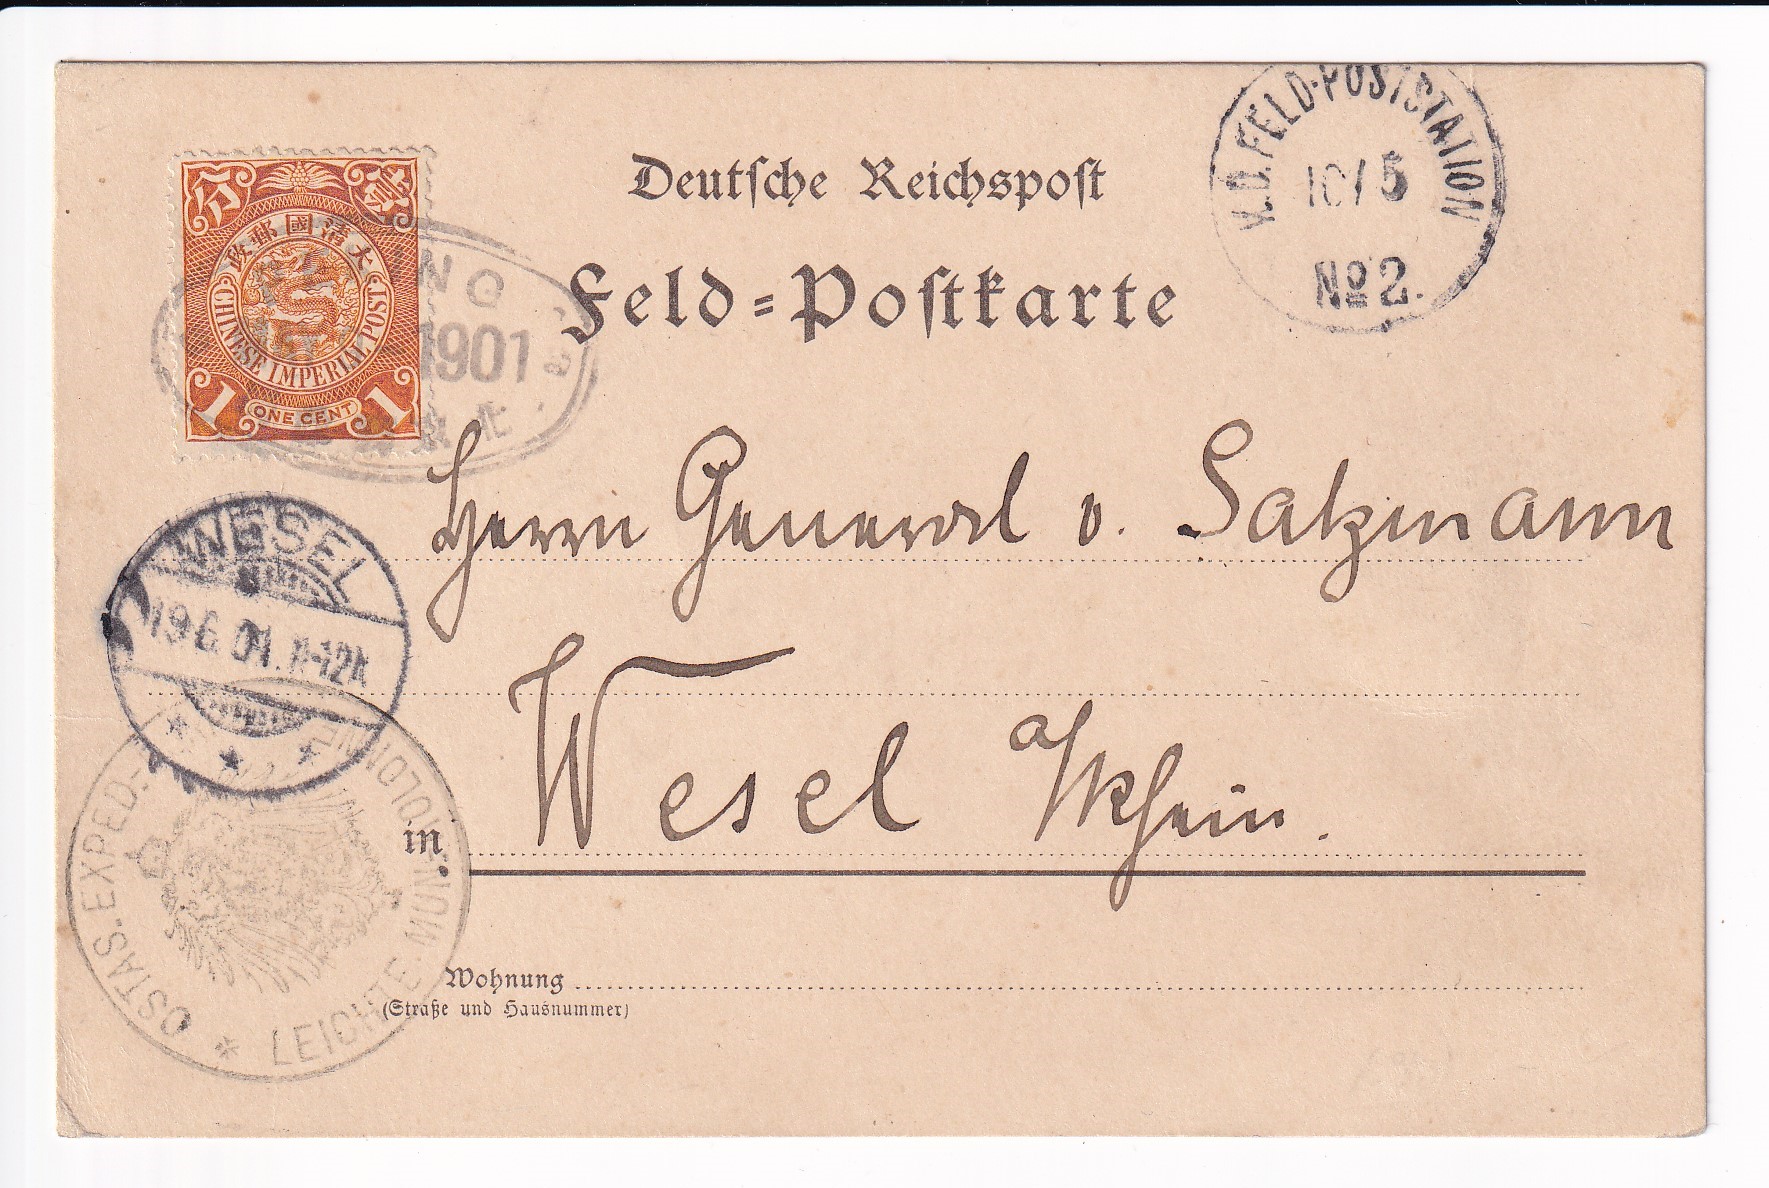 K.D. FELD-POSTSTATION
10/5
No 2.
Deutsche Reichspost
Feld=Postkarte
分 壹
政郵國清大
CHINESE IMPERIAL POST
1 ONE CENT 1
1901
北
Herrn General v. Salzmann
WESEL
19.6.01. 11-12
in Wesel a/Rhein.
OSTAS. EXPED.-
LEICHTE MUNIT. KOLONNE
Wohnung
(Straße und Hausnummer)